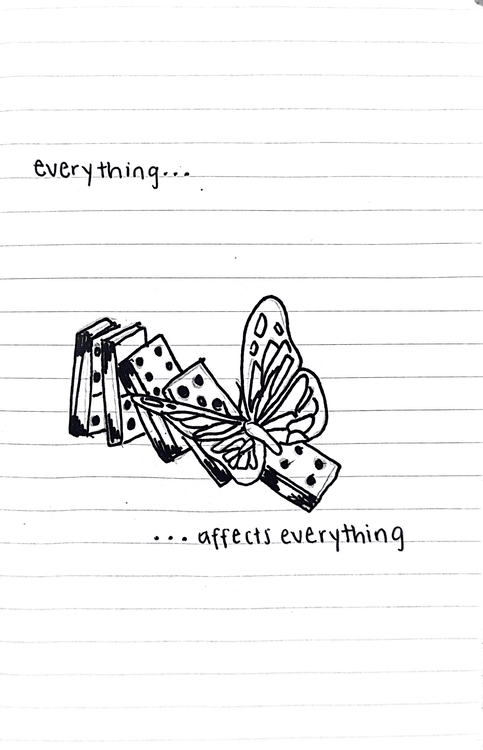 everything...
... affects everything